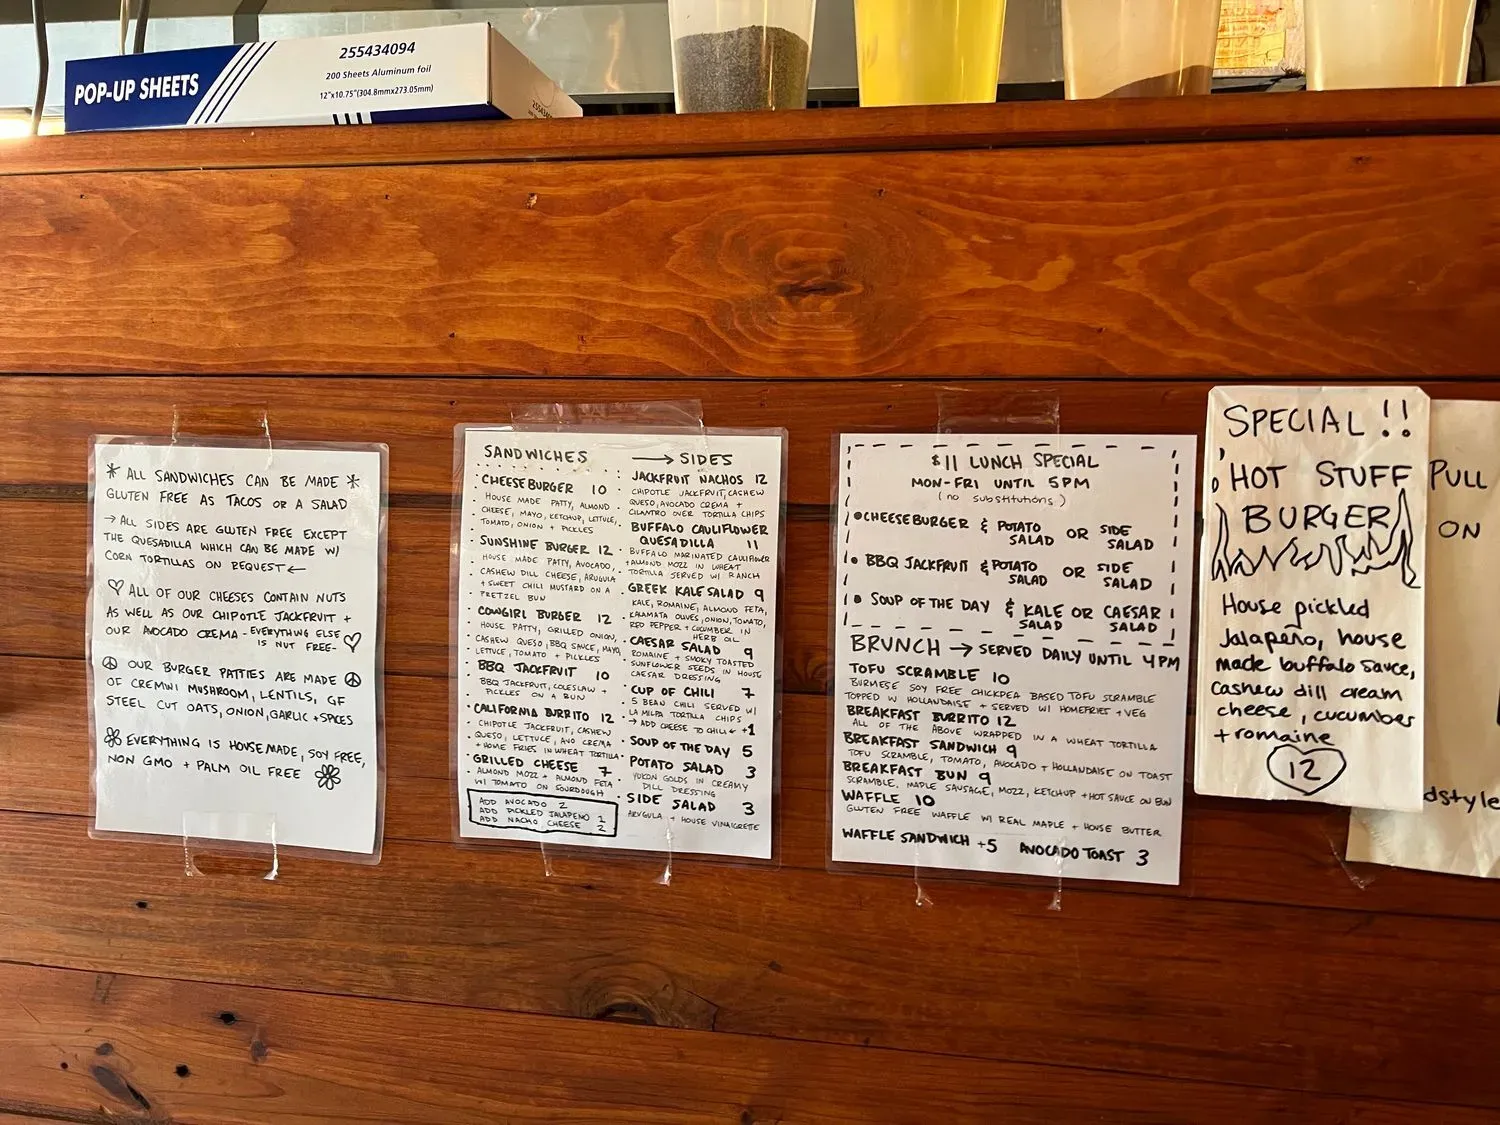 255434094
POP-UP SHEETS
200 Sheets Aluminum foil
12"x10.75"(304.8mmx273.05mm)
* ALL SANDWICHES CAN BE MADE *
GLUTEN FREE AS TACOS OR A SALAD
→ ALL SIDES ARE GLUTEN FREE EXCEPT
THE QUESADILLA WHICH CAN BE MADE W/
CORN TORTILLAS ON REQUEST ←
♡ ALL OF OUR CHEESES CONTAIN NUTS
AS WELL AS OUR CHIPOTLE JACKFRUIT +
OUR AVOCADO CREMA - EVERYTHING ELSE
IS NUT FREE- ♡
☮ OUR BURGER PATTIES ARE MADE ☮
OF CREMINI MUSHROOM, LENTILS, GF
STEEL CUT OATS, ONION, GARLIC + SPICES
EVERYTHING IS HOUSEMADE, SOY FREE,
NON GMO + PALM OIL FREE
SANDWICHES → SIDES
CHEESEBURGER 10
HOUSE MADE PATTY, ALMOND
CHEESE, MAYO, KETCHUP, LETTUCE,
TOMATO, ONION + PICKLES
SUNSHINE BURGER 12
HOUSE MADE PATTY, AVOCADO,
CASHEW DILL CHEESE, ARUGULA
+ SWEET CHILI MUSTARD ON A
PRETZEL BUN
COWGIRL BURGER 12
HOUSE PATTY, GRILLED ONION,
CASHEW QUESO, BBQ SAUCE, MAYO,
LETTUCE, TOMATO + PICKLES
BBQ JACKFRUIT 10
BBQ JACKFRUIT, COLESLAW +
PICKLES ON A BUN
CALIFORNIA BURRITO 12
CHIPOTLE JACKFRUIT, CASHEW
QUESO, LETTUCE, AVO CREMA
+ HOME FRIES IN WHEAT TORTILLA
GRILLED CHEESE 7
ALMOND MOZZ + ALMOND FETA
W/ TOMATO ON SOURDOUGH
ADD AVOCADO 2
ADD PICKLED JALAPEÑO 1
ADD NACHO CHEESE 2
JACKFRUIT NACHOS 12
CHIPOTLE JACKFRUIT, CASHEW
QUESO, AVOCADO CREMA +
CILANTRO OVER TORTILLA CHIPS
BUFFALO CAULIFLOWER
QUESADILLA 11
BUFFALO MARINATED CAULIFLOWER
+ ALMOND MOZZ IN WHEAT
TORTILLA SERVED W/ RANCH
GREEK KALE SALAD 9
KALE, ROMAINE, ALMOND FETA,
KALAMATA OLIVES, ONION, TOMATO,
RED PEPPER + CUCUMBER IN
HERB OIL
CAESAR SALAD 9
ROMAINE + SMOKY TOASTED
SUNFLOWER SEEDS IN HOUSE
CAESAR DRESSING
CUP OF CHILI 7
5 BEAN CHILI SERVED W/
LA MILPA TORTILLA CHIPS
→ ADD CHEESE TO CHILI +1
SOUP OF THE DAY 5
POTATO SALAD 3
YUKON GOLDS IN CREAMY
DILL DRESSING
SIDE SALAD 3
ARUGULA + HOUSE VINAIGRETTE
$11 LUNCH SPECIAL
MON-FRI UNTIL 5PM
(no substitutions)
• CHEESEBURGER & POTATO SALAD OR SIDE SALAD
• BBQ JACKFRUIT & POTATO SALAD OR SIDE SALAD
• SOUP OF THE DAY & KALE SALAD OR CAESAR SALAD
BRUNCH → SERVED DAILY UNTIL 4PM
TOFU SCRAMBLE 10
BURMESE SOY FREE CHICKPEA BASED TOFU SCRAMBLE
TOPPED W/ HOLLANDAISE + SERVED W/ HOMEFRIES + VEG
BREAKFAST BURRITO 12
ALL OF THE ABOVE WRAPPED IN A WHEAT TORTILLA
BREAKFAST SANDWICH 9
TOFU SCRAMBLE, TOMATO, AVOCADO + HOLLANDAISE ON TOAST
BREAKFAST BUN 9
SCRAMBLE, MAPLE SAUSAGE, MOZZ, KETCHUP + HOT SAUCE ON BUN
WAFFLE 10
GLUTEN FREE WAFFLE W/ REAL MAPLE + HOUSE BUTTER
WAFFLE SANDWICH +5 AVOCADO TOAST 3
SPECIAL !!
HOT STUFF
BURGER
House pickled
Jalapeño, house
made buffalo sauce,
cashew dill cream
cheese, cucumber
+ romaine
12
PULL
ON
dstyle